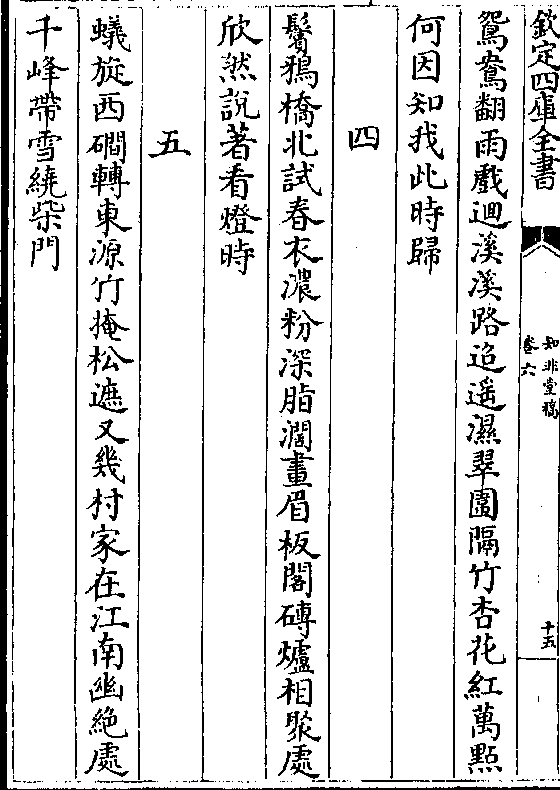 欽定四庫全書
知非堂稿
卷六
十五
鴛鴦翻雨戲迴溪溪路迢遥濕翠圍隔竹杏花紅萬㸃
何因知我此時歸
四
鬢鴉橋北試春衣濃粉深脂濶畫眉板閣磚爐相聚處
欣然說著看燈時
五
蟻旋西磵轉東源竹掩松遮又幾村家在江南幽絶處
千峰帶雪繞柴門